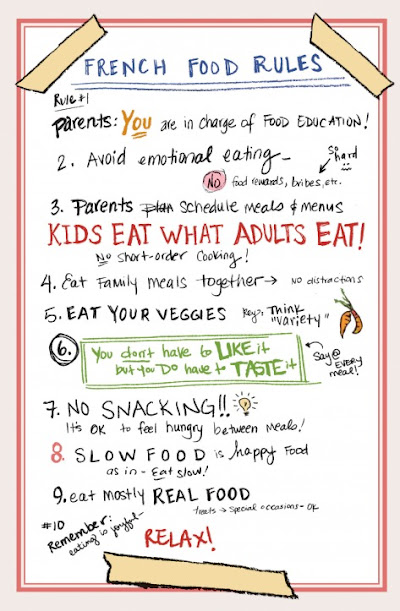 FRENCH FOOD RULES
Rule #1
Parents: You are in charge of FOOD EDUCATION!
2. Avoid emotional eating
So hard
NO food rewards, bribes, etc.
3. Parents plan Schedule meals & menus
KIDS EAT WHAT ADULTS EAT!
No Short-order Cooking!
4. Eat Family meals together → NO distractions
5. EAT YOUR VEGGIES Key: Think
"Variety"
6. You don't have to LIKE it
but you DO have to TASTE it
Say @ EVERY meal!
7. NO SNACKING!!
It's OK to feel hungry between meals!
8. SLOW FOOD is happy Food
as in - Eat slow!
9. eat mostly REAL FOOD
treats → Special occasions - OK
#10
Remember:
eating is joyful-
RELAX!